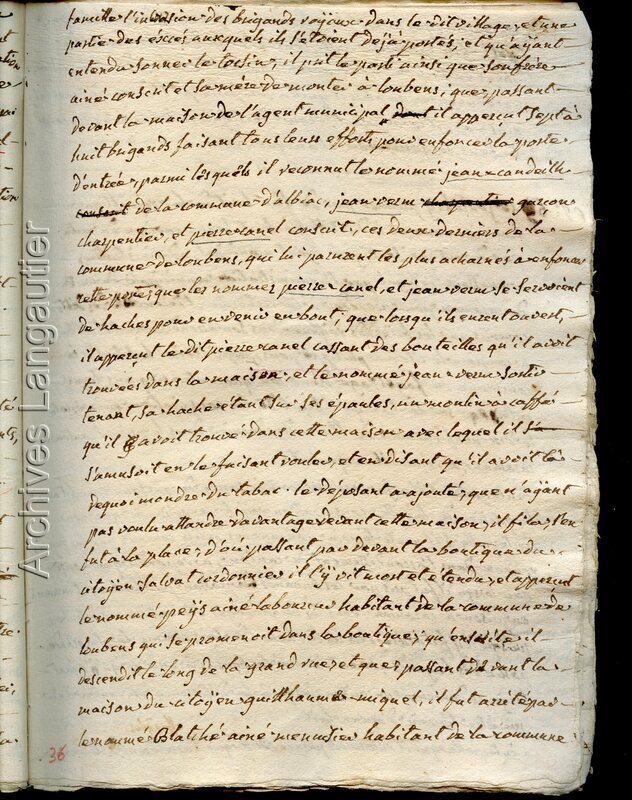 famille l'invasion des brigands royaux dans le dit village, et une
partie des éxcès auxquels ils s'étoient déjà portés, et qu'ayant
entendu sonner le tocsin, il prit le parti ainsi que son frère
ainé conscrit et sa mère de monter à loubens, que passant
devant la maison de l'agent municipal dont il apperçut sept à
huit brigands faisant tous leurs efforts pour enfoncer la porte
d'entrée, parmi lesquels il reconnut le nommé jean candeilh
conscrit de la commune d'albiac, jean verm charpentier garçon
charpentier, et pierre canel conscrit, ces deux derniers de la
commune de loubens, qui lui parurent les plus acharnés à enfoncer
cette porte, que les nommés pierre canel, et jean verm se servoient
de haches pour en venir en bout, que lorsqu'ils eurent ouvert,
il apperçut le dit pierre canel cassant des bouteilles qu'il avoit
trouvées dans la maison, et le nommé jean verm sortir
tenant, sa hache étant sur ses épaules, un moulin à caffé
qu'il avoit trouvé dans cette maison avec lequel il s'a
s'amusoit en le faisant rouler, et en disant qu'il avoit là
de quoi moudre du tabac. le déposant a ajouté, que n'ayant
pas voulu attendre davantage devant cette maison, il fila, s'en
fut à la place, d'où passant par devant la boutique du
citoyen Salvat cordonnier il l'y vit mort et étendu, et apperçut
le nommé peys ainé laboureur habitant de la commune de
loubens qui se promenoit dans la boutique, qu'ensuite il
descendit le long de la grand rue, et que passant devant la
maison du citoyen guilhaume miquel, il fut arrêté par
le nommé Blatché ainé menuisier habitant de la commune
36
Archives Langautier